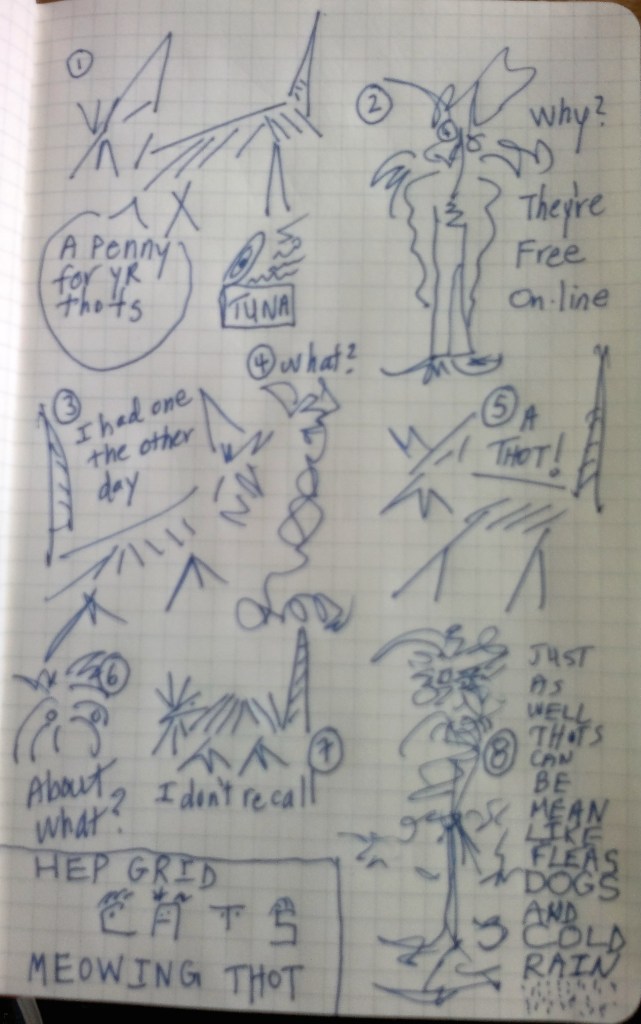 1
A Penny
for yr
thots
TUNA
2
Why?
They're
Free
On-line
3
I had one
the other
day
4 what?
5
A
THOT!
6
About
what?
7
I don't recall
8
JUST
AS
WELL
THOTS
CAN
BE
MEAN
LIKE
FLEAS
DOGS
AND
COLD
RAIN
HEP GRID
CATS
MEOWING THOT